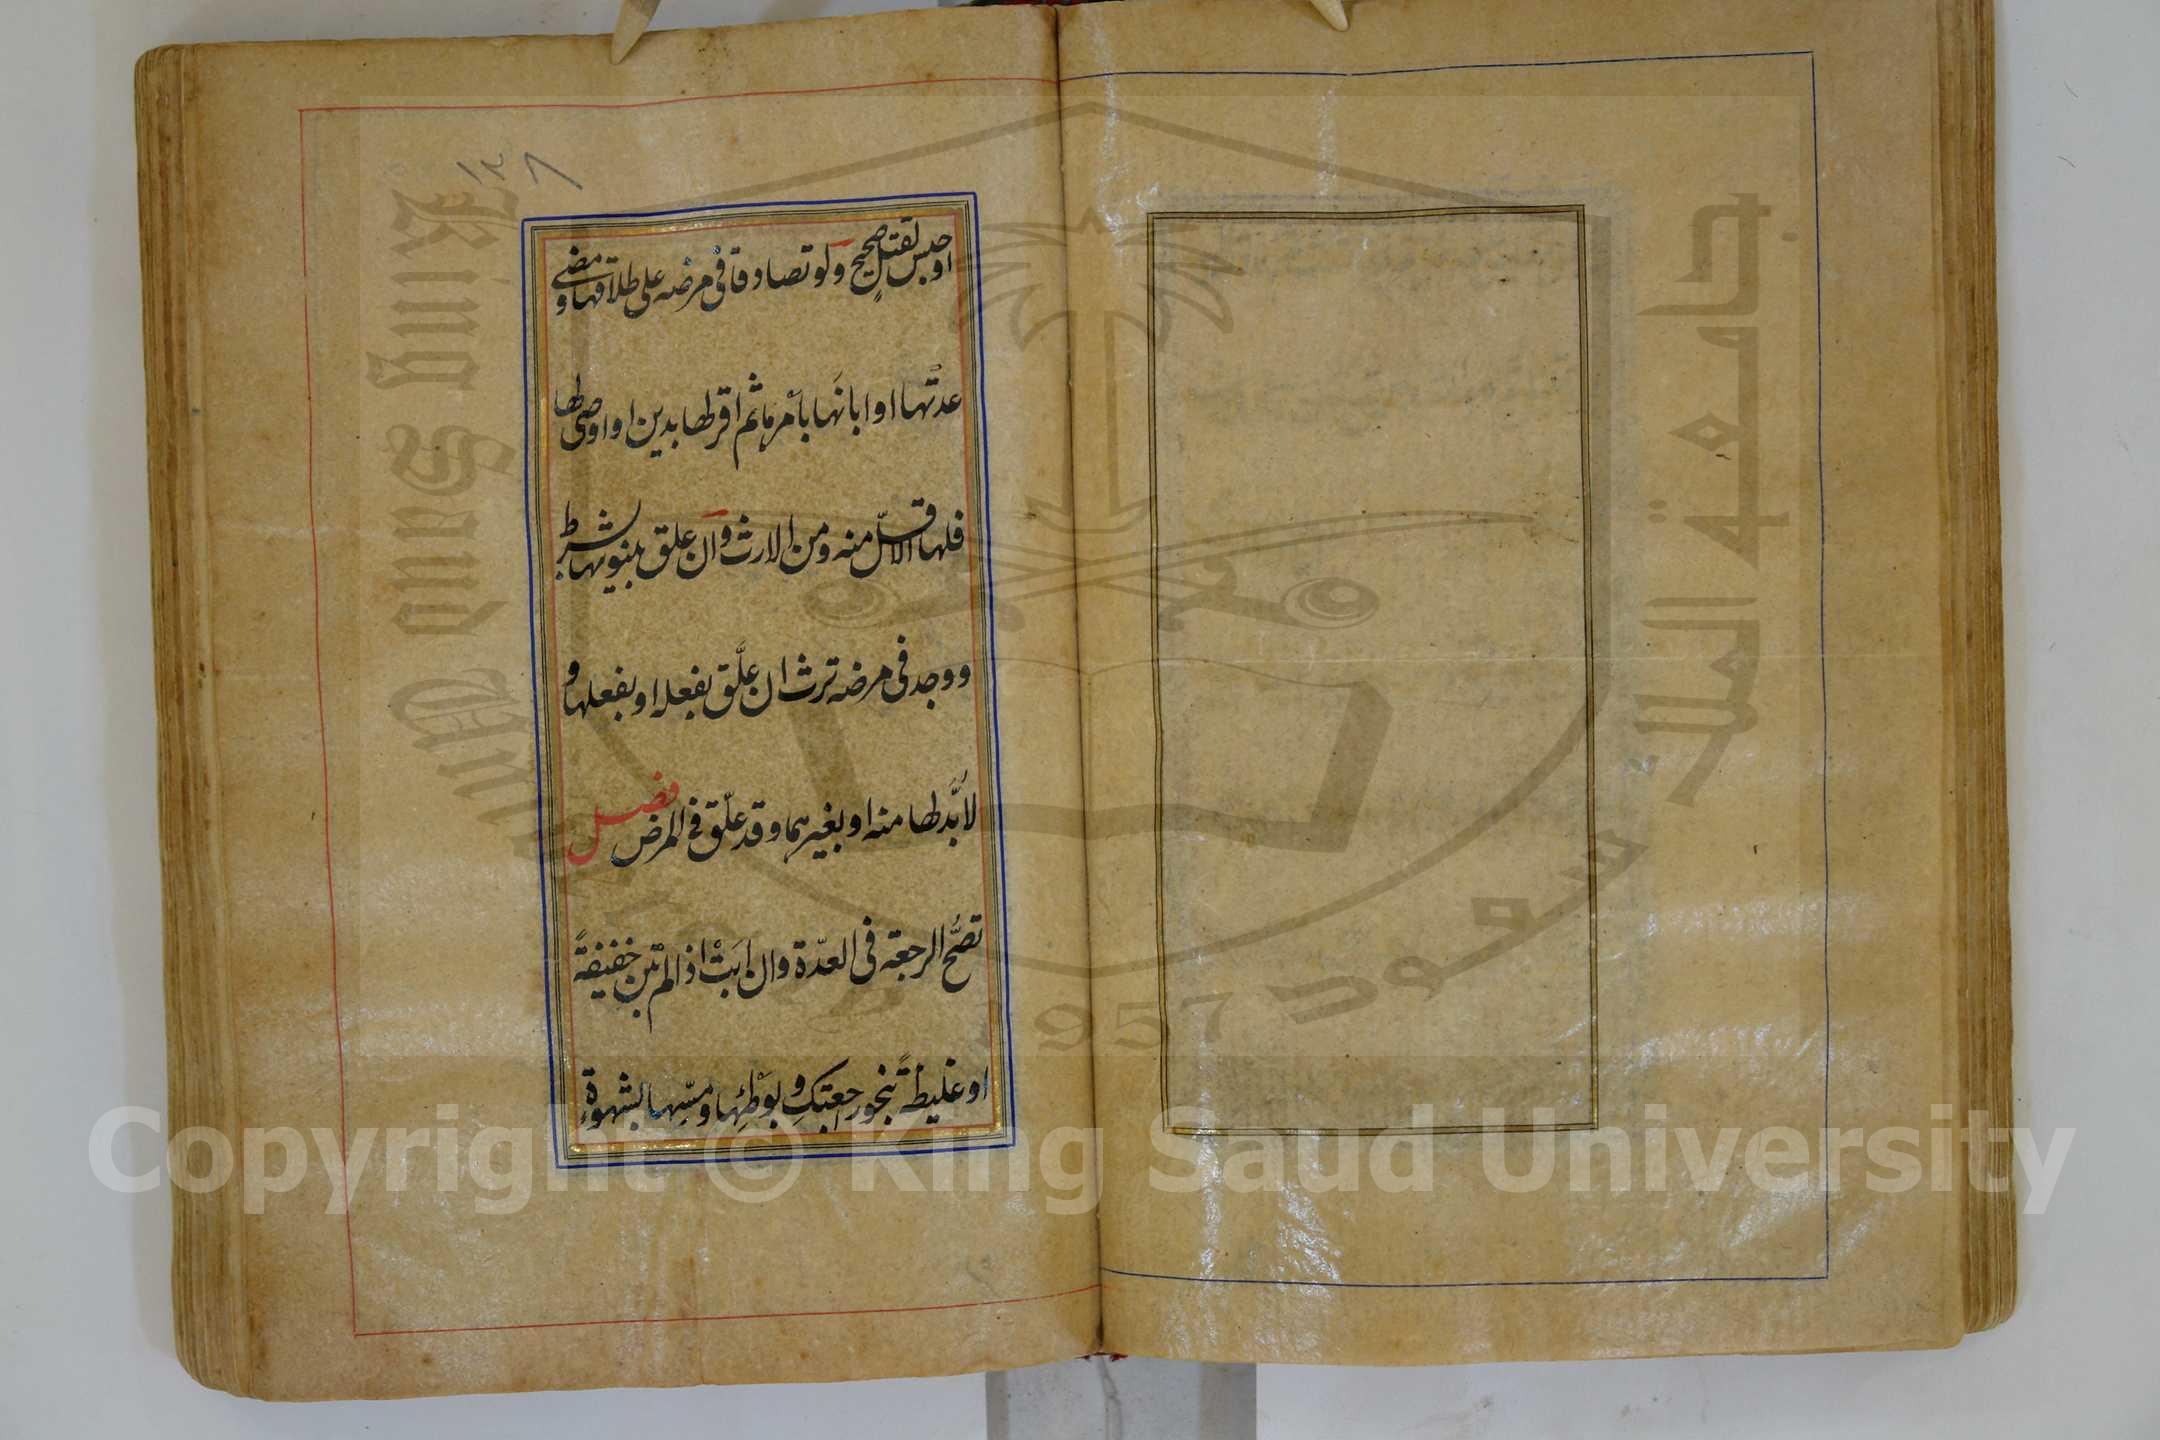 ١٣٨
او حبس لقتل صحيح ولو تصادقا فى مرضه على طلاقها ومضى
عدتها او ابانها بامرها ثم اقر لها بدين او اوصى لها
فلها الاقل منه ومن الارث وان علق بينونتها بشرط
ووجد فى مرضه ترث ان علّق بفعله او بفعلها و
لابُدّ لها منه او بغيرهما وقد علّق فى المرض فصل
تصحّ الرجعة فى العدّة وان ابَتْ اذا لم تبن خفيفةً
او غليظةً بنحو راجعتكِ وبوطئِها ومسّها بشهوةٍ
جامعة الملك سعود
King Saud University
1957
Copyright © King Saud University